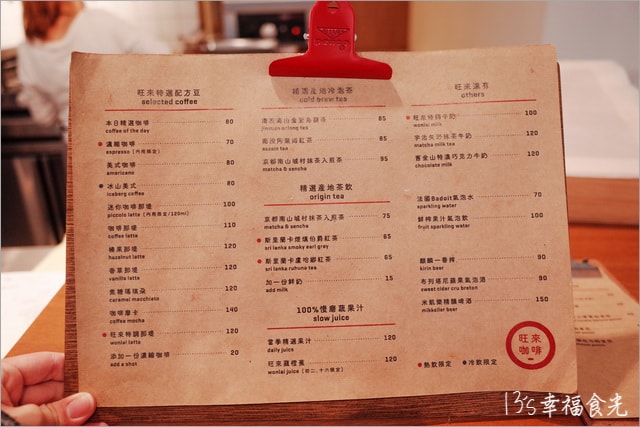 旺來特選配方豆
selected coffee
本日精選咖啡 80
coffee of the day
濃縮咖啡 70
espresso (內用限定)
美式咖啡 80
americano
冰山美式
iceberg coffee
迷你咖啡那堤 100
piccolo latte (內用限定/120ml)
咖啡那堤 110
coffee latte
榛果那堤 120
hazelnut latte
香草那堤 120
vanilla latte
焦糖瑪琪朵 120
caramel macchiato
咖啡摩卡 140
coffee mocha
旺來特調那堤 120
wonlai latte
添加一份濃縮咖啡 20
add a shot
精選產地冷泡茶
cold brew tea
85
85
assam tea
京都南山城村抹茶入煎茶 95
matcha & sencha
精選產地茶飲
origin tea
京都南山城村抹茶入煎茶 75
matcha & sencha
斯里蘭卡煙燻伯爵紅茶 65
sri lanka smoky earl grey
斯里蘭卡盧哈娜紅茶 65
sri lanka ruhuna tea
加一份鮮奶 15
add milk
100%慢磨蔬果汁
slow juice
當季精選果汁 120
daily juice
旺來蔬檀蕉 120
wonlai juice (初二、十六限定)
旺來還有
others
旺來特調牛奶 100
wonlai milk
宇治免紗抹茶牛奶 120
matcha milk tea
舊金山特濃巧克力牛奶 120
chocolate milk
法國Badoit氣泡水 70
sparkling water
鮮榨果汁氣泡飲 100
fruit sparkling water
麒麟一番搾 90
kirin beer
布列塔尼蘋果氣泡酒 90
sweet cider cru breton
米凱樂精釀啤酒 150
mikkeller beer
旺來
咖啡
熱飲限定 冷飲限定
13's幸福食光